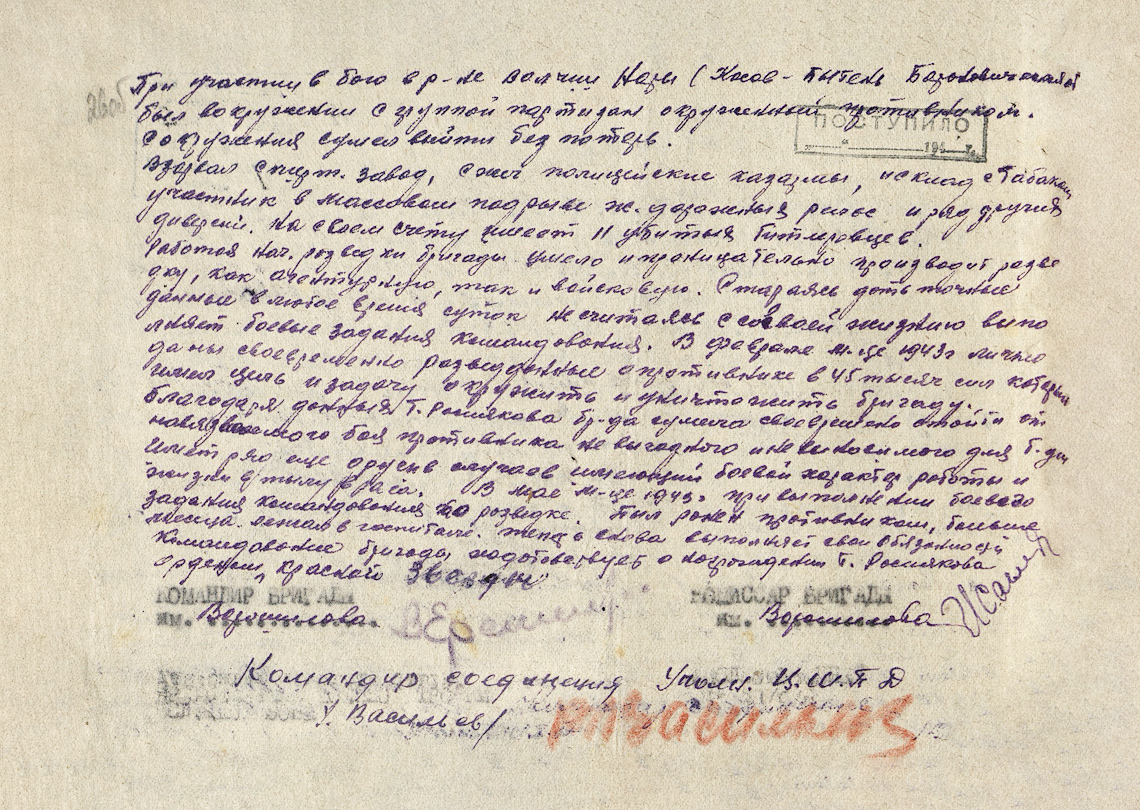 При участии в бою в р-не Волчии Норы (Косов - Бытень Барановичской
был в окружении с группой партизан окруженный противником.
с окружения сумел выйти без потерь.
ПОСТУПИЛО
194 г.
Взорвал спирт. завод, сжег полицейские казармы, и склад с табаком
участник в массовом подрыве ж. дорожных рельс и ряд других
диверсий. На своем счету имеет 11 убитых гитлеровцев.
Работая нач. разведки бригады умело и проницательно производит разве
дку, как агентурную, так и войсковую. Стараясь дать точные
данные в любое время суток не считаясь с своей жизнию выпо
лняет боевые задания командования. В феврале м-це 1943г лично
даны своевременно разведданные о противнике в 45 тысяч сил который
имел цель и задачу окружить и уничтожить бригаду.
благодаря данных Т. Росля­кова бр-да сумела своевремено отойти от
навязываемого боя противника не выгодного и невыносимого для б-ды
имет ряд еще других случаев имеющий боевой характер работы и
жизни в тылу врага. В мае м-це 1943г при выполнении боевого
задания командования по разведке. был ранен противником, больше
месяца лежал в госпитале. теперь снова выполняет свои обязаности
Командование бригады ходотовствует о награждении Т. Рослякова
орденом „Красной Звезды
КОМАНДИР БРИГАДЫ КОМИССАР БРИГАДЫ
им. Ворошилова им. Ворошилова
Командир соединения Уполн. Ц.Ш.П.Д
/ Васильев/